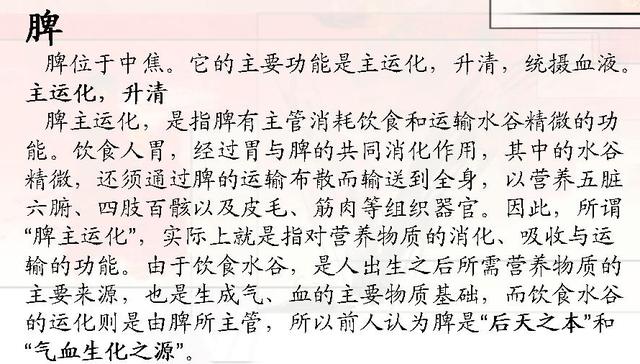 脾
脾位于中焦。它的主要功能是主运化，升清，统摄血液。
主运化，升清
脾主运化，是指脾有主管消耗饮食和运输水谷精微的功
能。饮食人胃，经过胃与脾的共同消化作用，其中的水谷
精微，还须通过脾的运输布散而输送到全身，以营养五脏
六腑、四肢百骸以及皮毛、筋肉等组织器官。因此，所谓
“脾主运化”，实际上就是指对营养物质的消化、吸收与运
输的功能。由于饮食水谷，是人出生之后所需营养物质的
主要来源，也是生成气、血的主要物质基础，而饮食水谷
的运化则是由脾所主管，所以前人认为脾是“后天之本”和
“气血生化之源”。